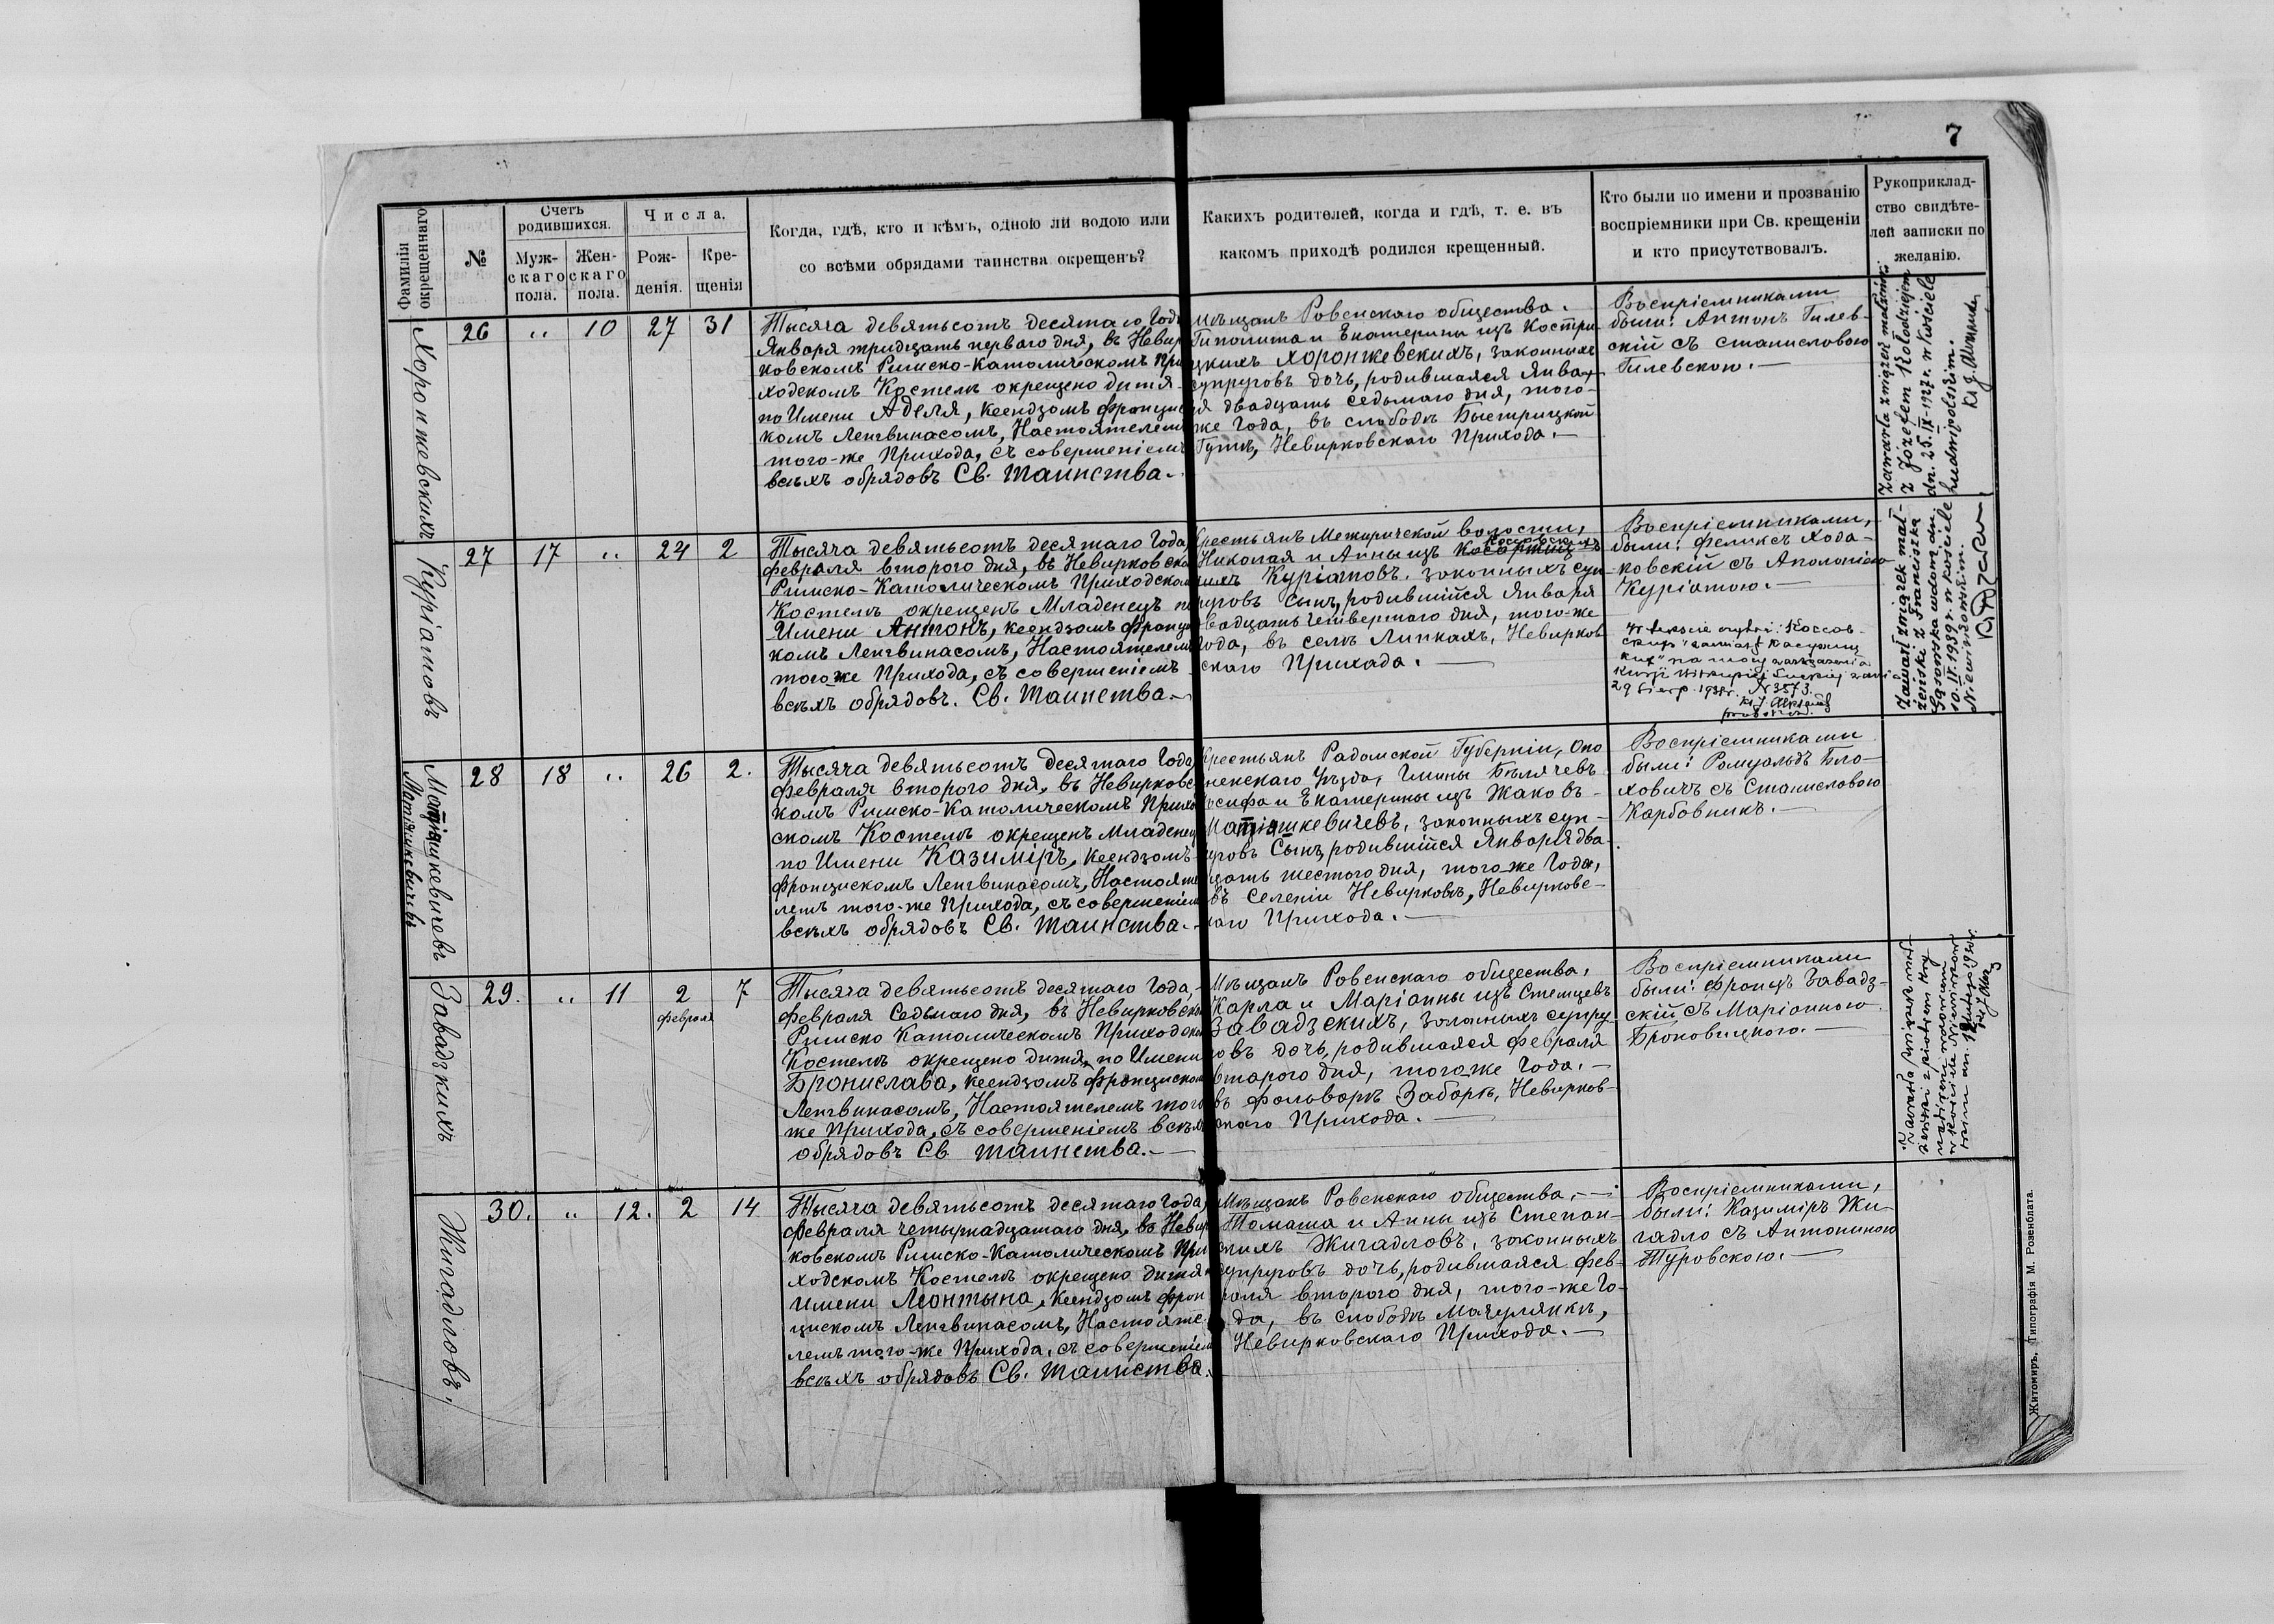 7
Фамилія окрещеннаго
№
Счетъ родившихся.
Муж-скаго пола.
Жен-скаго пола.
Числа.
Рож-денія.
Кре-щенія
Когда, гдѣ, кто и кѣмъ, одною ли водою или
со всѣми обрядами таинства окрещенъ?
Какихъ родителей, когда и гдѣ, т. е. въ
какомъ приходѣ родился крещенный.
Кто были по имени и прозванію
воспріемники при Св. крещеніи
и кто присутствовалъ.
Рукоприклад-
ство свидѣте-
лей записки по
желанію.
Хоронжевскихъ
26 „ 10 27 31
Тысяча девятьсотъ десятаго Года
Января тридцать перваго дня, въ Невир
ковскомъ Римско-Католическомъ При
ходскомъ Костелѣ окрещено дитя
по Имени Аделя, ксендзомъ Францис
комъ Ленгвинасомъ, Настоятелемъ
того-же Прихода, съ совершеніемъ
всѣхъ обрядовъ Св. Таинства.
Мѣщанъ Ровенскаго общества.
Гиполита и Екатерины изъ Костри-
цкихъ Хоронжевскихъ, законныхъ
супруговъ дочь, родившаяся Янва-
ря двадцать седьмаго дня, того-
же Года, въ слободѣ Быстрицкой
Гутѣ, Невирковскаго Прихода.
Воспріемниками
были: Антонъ Гилев-
скій съ Станиславою
Гилевскою.
Zawarła związek małżeński
z Józefem Kołodziejem
dn. 25.IX-1927 r. w kościele
Ludwipolskim.
Куріатовъ
27 17 „ 24 2
Тысяча девятьсотъ десятаго Года
февраля второго дня, въ Невирковско
Римско-Католическомъ Приходском
Костелѣ окрещенъ Младенецъ по
Имени Антонъ, ксендзомъ Францис
комъ Ленгвинасомъ, Настоятелемъ
того же Прихода, съ совершеніемъ
всѣхъ обрядовъ. Св. Таинства.
Крестьянъ Межиричской волости,
Николая и Анны изъ
кихъ Куріатовъ. законныхъ суп-
руговъ сынъ, родившійся Января
двадцать четвертаго дня, того-же
Года, въ селѣ Липкахъ, Невирков
скаго Прихода.
Воспріемниками,
были: Феликсъ Хода-
ковскій съ Аполоніею
Куріатою.
29 sierp. 1938 r. N 3573.
Zawarł związek mał-
żeński z Franciszką
10.IV.1939 r. w kościele
Niewirkowskim.
Матіашкевичевъ
28 18 „ 26 2.
Тысяча девятьсотъ десятаго Года
февраля второго дня, въ Невирковс
комъ Римско-Католическомъ Приход
скомъ Костелѣ окрещенъ Младенец
по Имени Казиміръ, ксендзомъ
Францискомъ Ленгвинасомъ, Настояте
лемъ того-же Прихода, съ совершеніем
всѣхъ обрядовъ Св. Таинства.
Крестьянъ Радомской Губерніи, Опо
ченскаго Уѣзда, Гмины Бѣлячевъ
Іосифа и Екатерины изъ Жаковъ
Матіашкевичевъ, законныхъ суп-
руговъ Сынъ, родившійся Января два
дцать шестого дня, того же Года,
въ Селеніи Невирковѣ, Невирковс-
каго Прихода.
Воспріемниками
были: Ромуальдъ Бло-
ховичъ съ Станиславою
Карбовникъ.
Завадзкихъ
29. „ 11 2 февраля 7
Тысяча девятьсотъ десятаго Года
февраля Седьмаго дня, въ Невирковском
Римско Католическомъ Приходском
Костелѣ окрещено дитя, по Имени
Бронислава, ксендзомъ Францискомъ
Ленгвинасомъ, Настоятелемъ того
же Прихода, съ совершеніемъ всѣхъ
обрядовъ Св Таинства.
Мѣщанъ Ровенскаго общества,
Карла и Маріанны изъ Стемпцевъ
Завадзскихъ, законныхъ супру-
говъ дочь, родившаяся февраля
втораго дня, того же Года.
въ фольваркѣ Заборѣ, Невирков-
скаго Прихода.
Воспріемниками
были: Францъ Завадз-
скій съ Маріанною
Броновицкою.
Жигадловъ.
30. „ 12. 2 14
Тысяча девятьсотъ десятаго Года,
февраля четырнадцатаго дня, въ Невир
ковскомъ Римско-Католическомъ При
ходскомъ Костелѣ окрещено дитя
Имени Леонтына, ксендзомъ Фран
цискомъ Ленгвинасомъ, Настояте
лемъ того-же Прихода, съ совершеніемъ
всѣхъ обрядовъ Св. Таинства.
Мѣщанъ Ровенскаго общества,
Томаша и Анны изъ Степан-
скихъ Жигадловъ, законныхъ
супруговъ дочь, родившаяся фев-
раля второго дня, того-же Го-
да, въ слободѣ Мочулянкѣ,
Невирковскаго Прихода.
Воспріемниками,
были: Казиміръ Жи-
гадло съ Антониною
Туровскою.
Житомиръ, Типографія М. Розенблата.